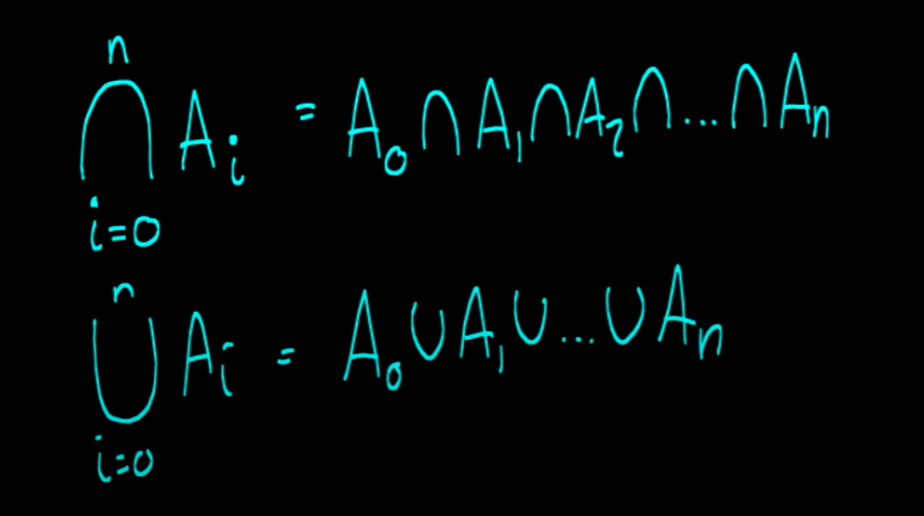 n
⋂ Aᵢ = A₀ ∩ A₁ ∩ A₂ ∩ ... ∩ Aₙ
i=0
n
⋃ Aᵢ = A₀ ∪ A₁ ∪ ... ∪ Aₙ
i=0